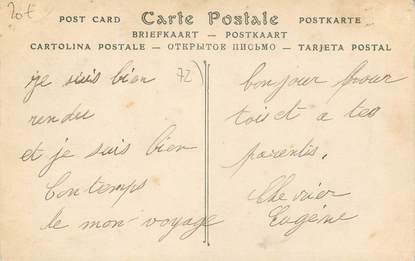 20f
POST CARD Carte Postale POSTKARTE
BRIEFKAART — POSTKAART
CARTOLINA POSTALE — ОТКРЫТОЕ ПИСЬМО — TARJETA POSTAL
72)
je suis bien
rendu
et je suis bien
Contemps
de mon voyage
bonjour pour
toi et a tes
parentis.
Chevrier
Eugène